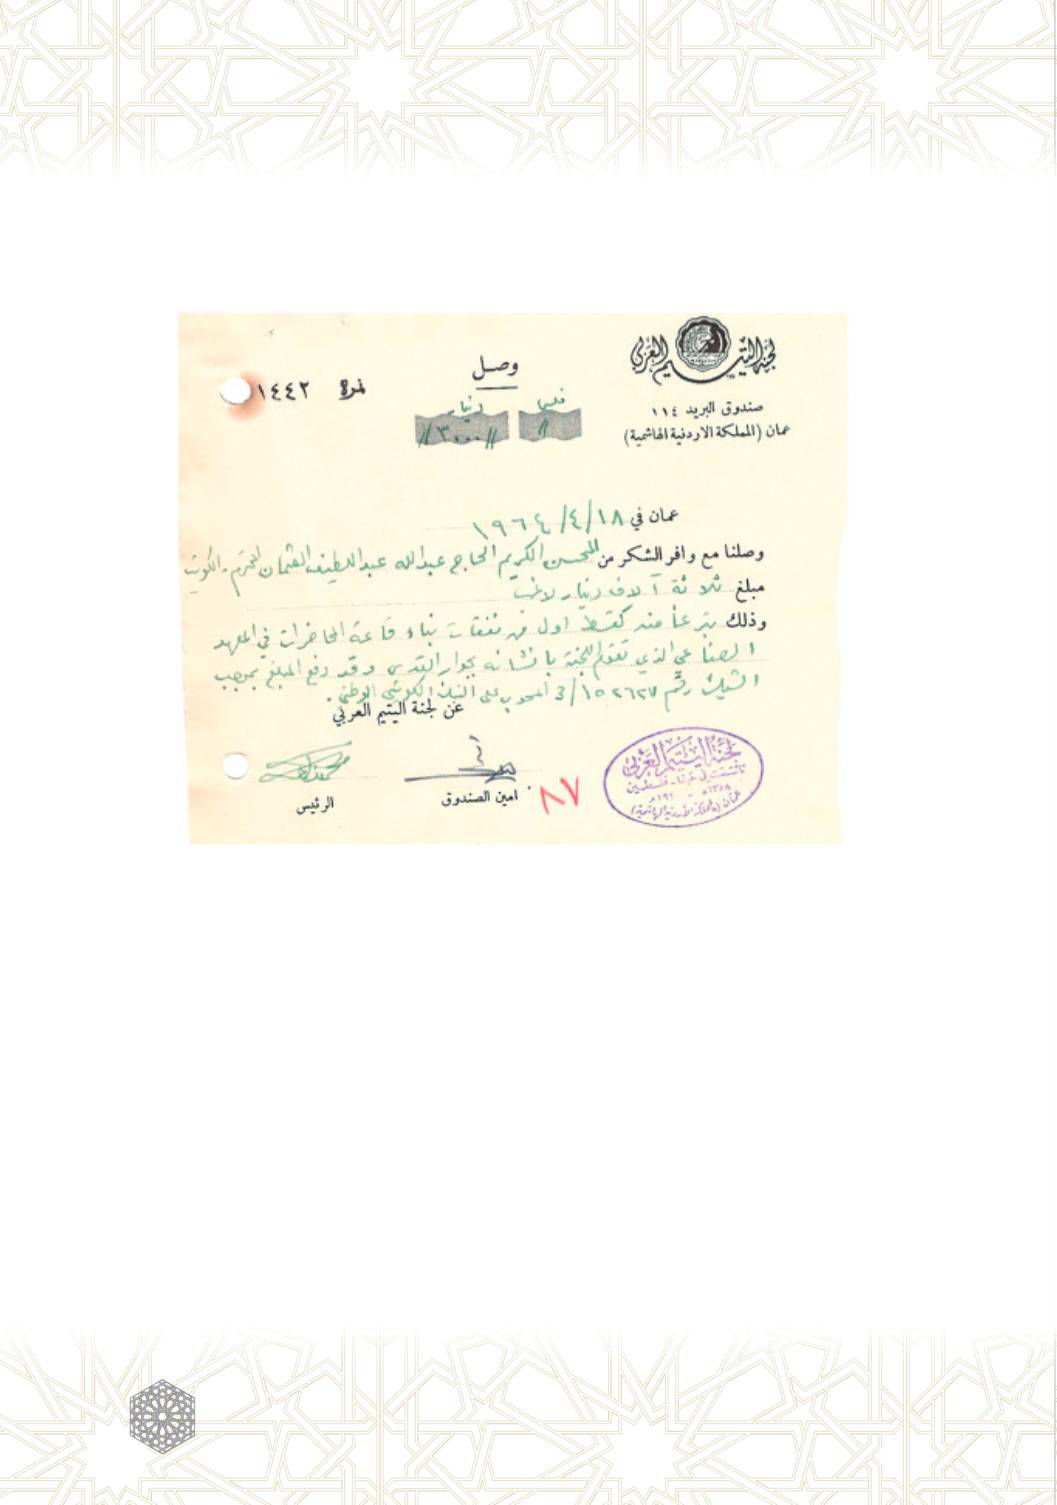 لجنة اليتيم العربي
صندوق البريد ١١٤
عمان (المملكة الاردنية الهاشمية)
وصل
فلس دينار
// //٣٠٠٠//
نمرة ١٤٤٢
عمان في ١٩٦٤/٤/١٨
وصلنا مع وافر الشكر من المحسن الكريم الحاج عبدالله عبداللطيف العثمان المحترم - الكويت
مبلغ ثلاثة آلاف دينار لاغير
وذلك تبرعاً منه كقسط اول من نفقات بناء قاعة المحاضرات في المعهد
الصناعي الذي تقوم اللجنة بانشائه بجوار القدس وقد دفع المبلغ بموجب
الشيك رقم 3/١٥٢٦٢٧ المسحوب على البنك الكويتي الوطني.
عن لجنة اليتيم العربي
امين الصندوق
الرئيس
٨٧
لجنة اليتيم العربي
تأسست في حيفا - فلسطين
١٣٥٨هـ - ١٩٤٠م
عمان (المملكة الأردنية الهاشمية)